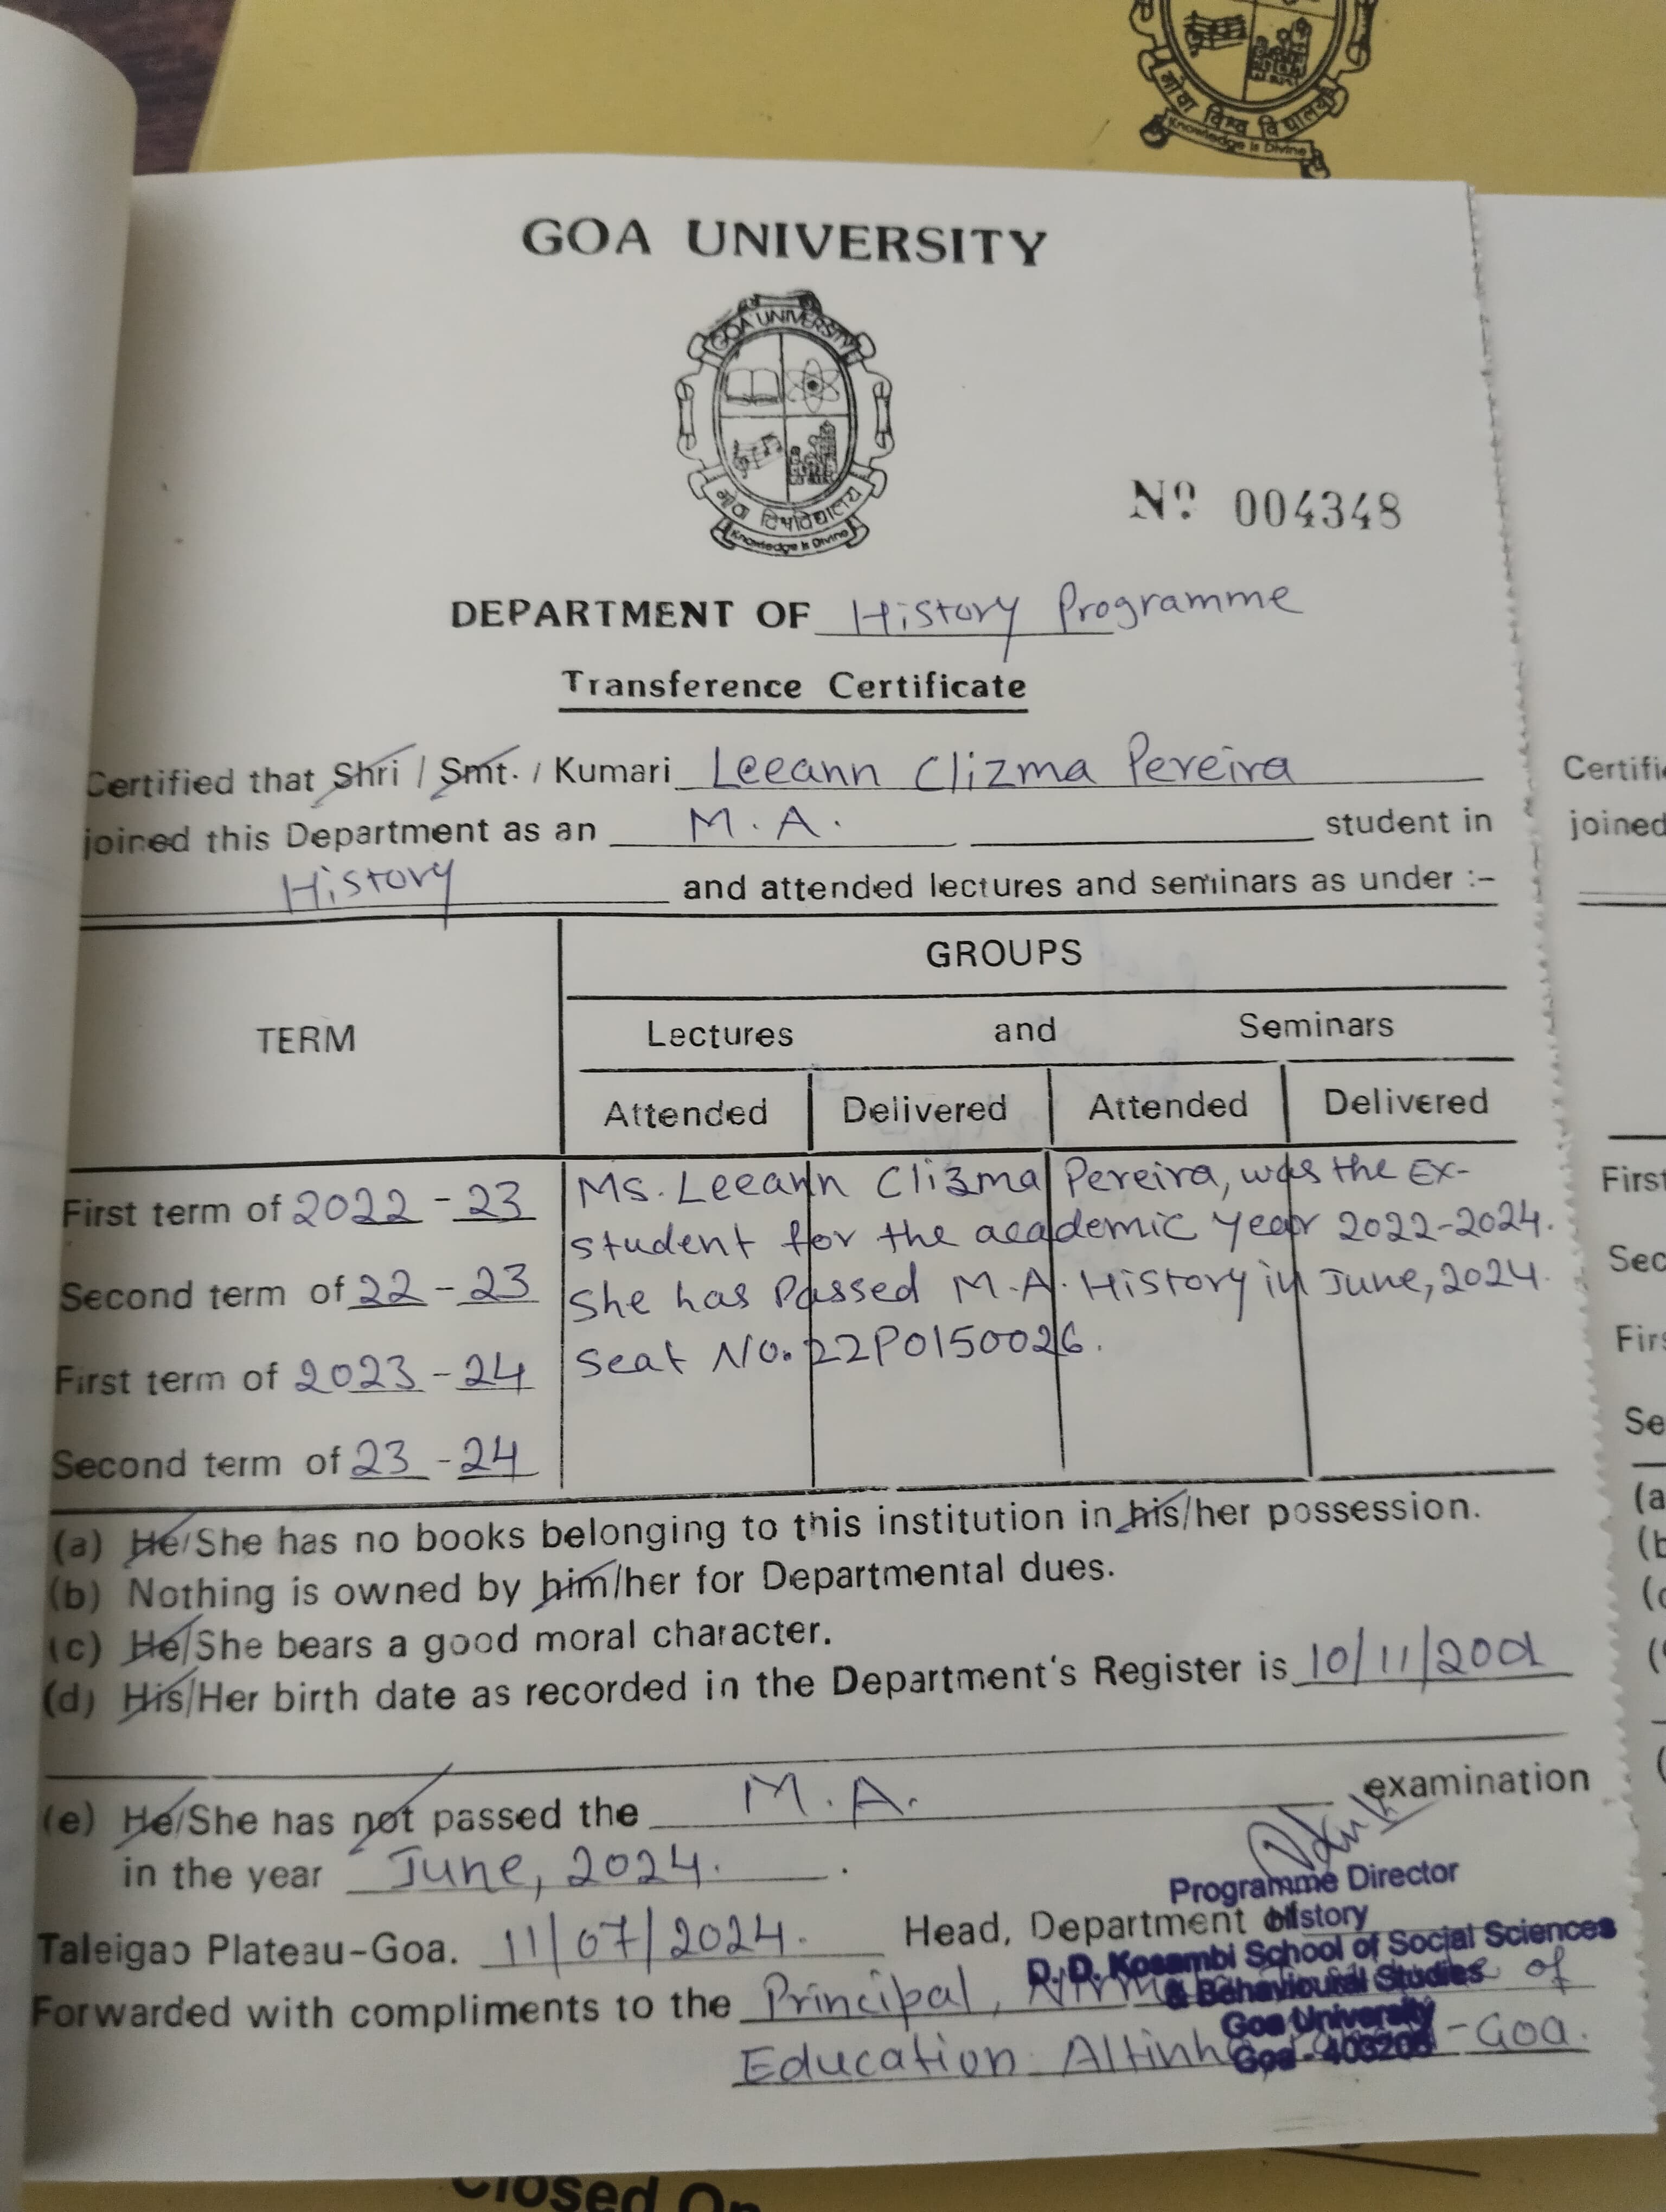 गोवा विश्व विद्यालय
Knowledge is Divine
GOA UNIVERSITY
GOA UNIVERSITY
गोवा विश्वविद्यालय
Knowledge is Divine
Nº 004348
DEPARTMENT OF History Programme
Transference Certificate
Certified that Shri / Smt. / Kumari Leeann Clizma Pereira
joined this Department as an M.A. student in
History and attended lectures and seminars as under :-
GROUPS
TERM
Lectures and Seminars
Attended Delivered Attended Delivered
First term of 2022-23
Second term of 22-23
First term of 2023-24
Second term of 23-24
Ms. Leeann Clizma Pereira, was the Ex-
student for the academic year 2022-2024.
She has Passed M.A. History in June, 2024.
Seat No. 22P0150026.
(a) He/She has no books belonging to this institution in his/her possession.
(b) Nothing is owned by him/her for Departmental dues.
(c) He/She bears a good moral character.
(d) His/Her birth date as recorded in the Department's Register is 10/11/2001
(e) He/She has not passed the M.A. examination
in the year June, 2024.
Programme Director
Taleigao Plateau-Goa. 11/07/2024. Head, Department of
History
D. D. Kosambi School of Social Sciences
& Behavioural Studies
Goa University
Goa - 403206
Forwarded with compliments to the Principal, of
Education Altinho -Goa.
Certifi
joined
First
Sec
Firs
Se
(a
(b
(c
Closed On